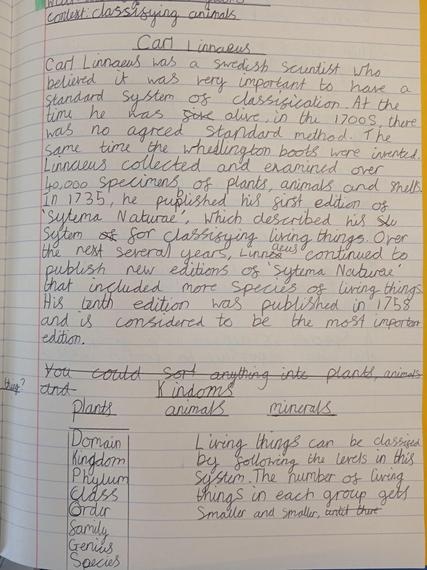 context: classifying animals
Carl Linnaeus
Carl Linnaeus was a swedish scientist who
believed it was very important to have a
standard system of classification. At the
time he was alive in the 1700s, there
was no agreed standard method. The
same time the whellington boots were invented.
Linnaeus collected and examined over
40,000 specimens of plants, animals and shells.
In 1735, he published his first edition of
'Sytema Naturae', which described his
Sytem for classifying living things. Over
the next several years, Linnaeus continued to
publish new editions of 'Sytema Naturae'
that included more species of living things.
His tenth edition was published in 1758
and is considered to be the most important
edition.
You could sort anything into plants, animals
and Kindoms
plants animals minerals
Domain
Kingdom
Phylum
Class
Order
family
Genius
Species
Living things can be classified
by following the levels in this
system. The number of living
things in each group gets
smaller and smaller, until there